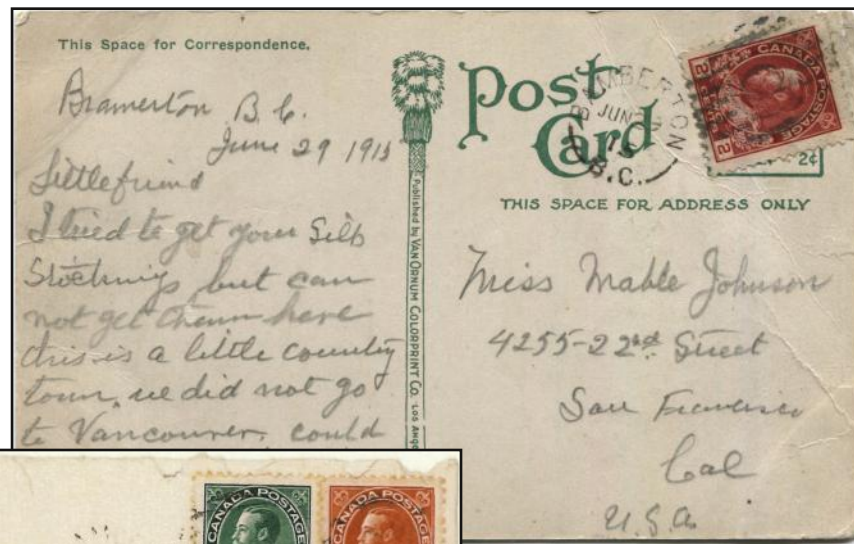 This Space for Correspondence.
Bamerton B.C.
June 29 1915
Littlefriend
I tried to get your Silk
Stockings but can
not get them here
this is a little country
town, we did not go
to Vancouver, could
Published by VAN ORNUM COLORPRINT CO. LOS ANGE
Post
Card
MBERTON
JUN
15
B.C.
CANADA POSTAGE
2¢
THIS SPACE FOR ADDRESS ONLY
Miss Mable Johnson
4255-22nd Street
San Francisco
Cal
U.S.A.
CANADA POSTAGE
CANADA POSTAGE